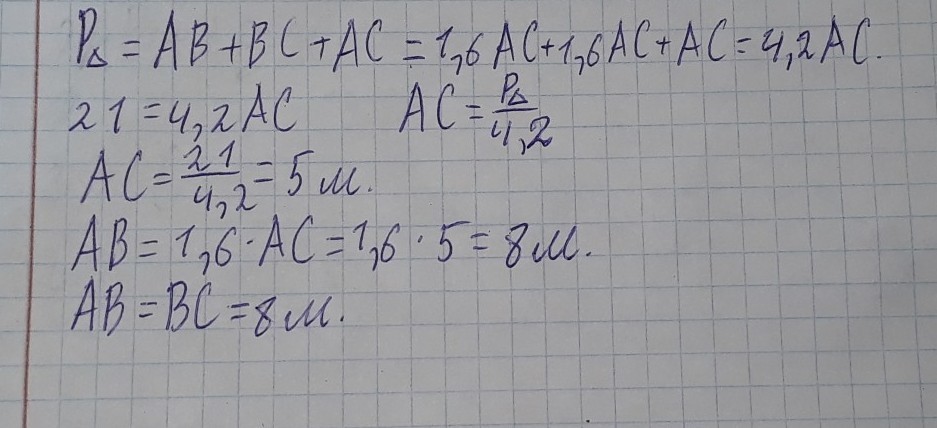 P△ = AB + BC + AC = 1,6 AC + 1,6 AC + AC = 4,2 AC.
21 = 4,2 AC    AC = P△/4,2
AC = 21/4,2 = 5 м.
AB = 1,6 · AC = 1,6 · 5 = 8 м.
AB = BC = 8 м.